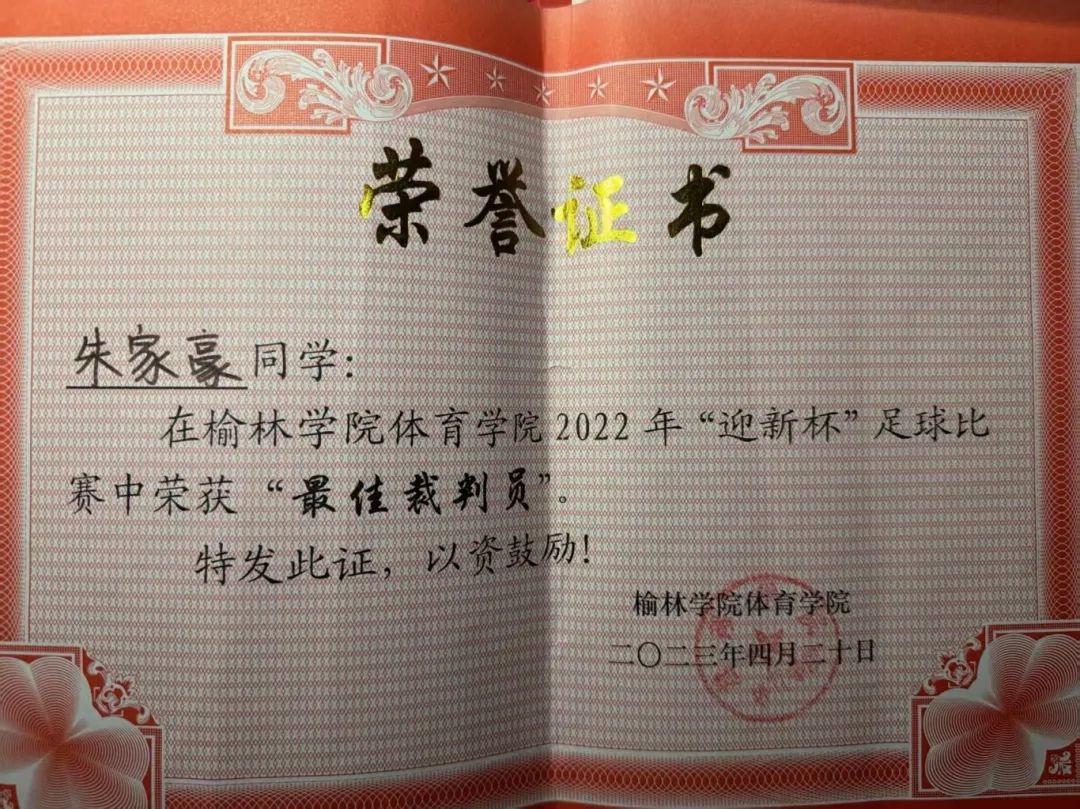 荣誉证书
朱家豪同学：
在榆林学院体育学院2022年“迎新杯”足球比
赛中荣获“最佳裁判员”。
特发此证，以资鼓励！
榆林学院体育学院
二〇二三年四月二十日